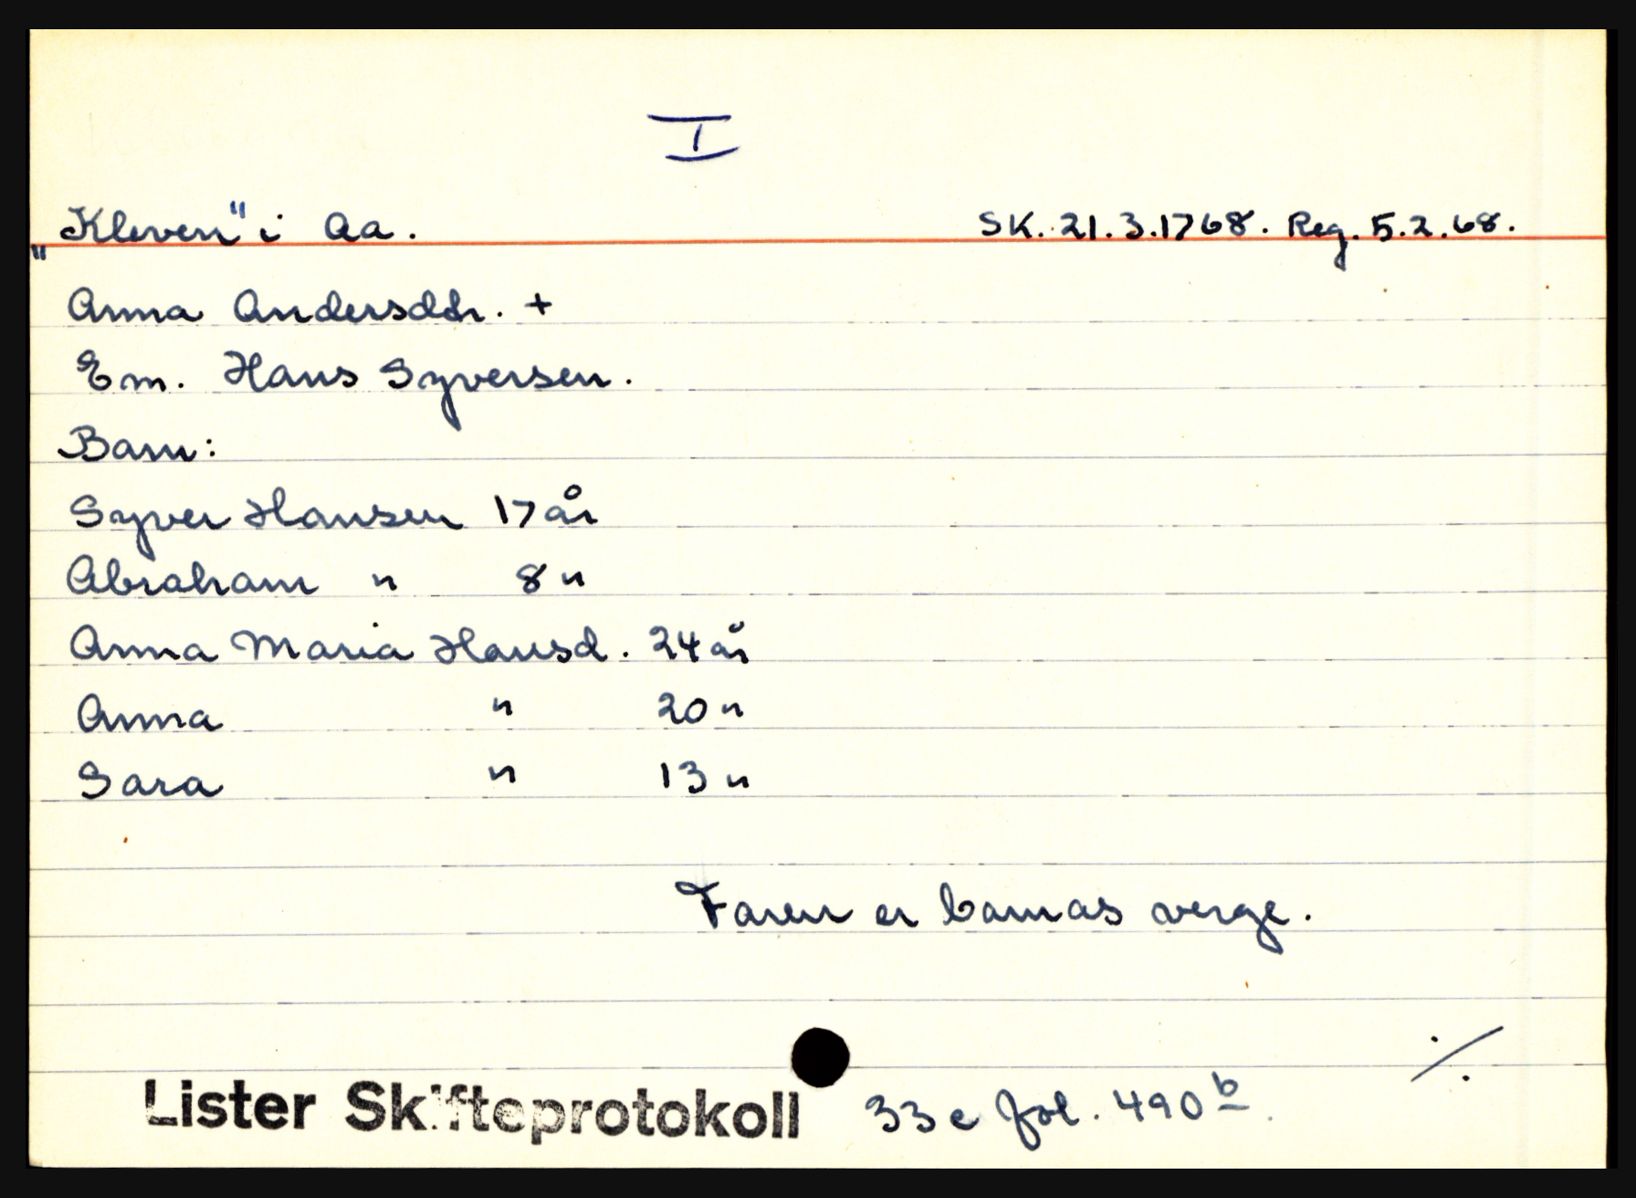 I
„Kleven" i Aa. SK. 21.3.1768. Reg. 5.2.68.
Anna Andersdtr. +
Em. Hans Syversen.
Barn:
Syver Hansen 17 år
Abraham " 8 "
Anna Maria Hansd. 24 år
Anna " 20 "
Sara " 13 "
Faren er barnas verge.
Lister Skifteprotokoll 33 c fol. 490 b.